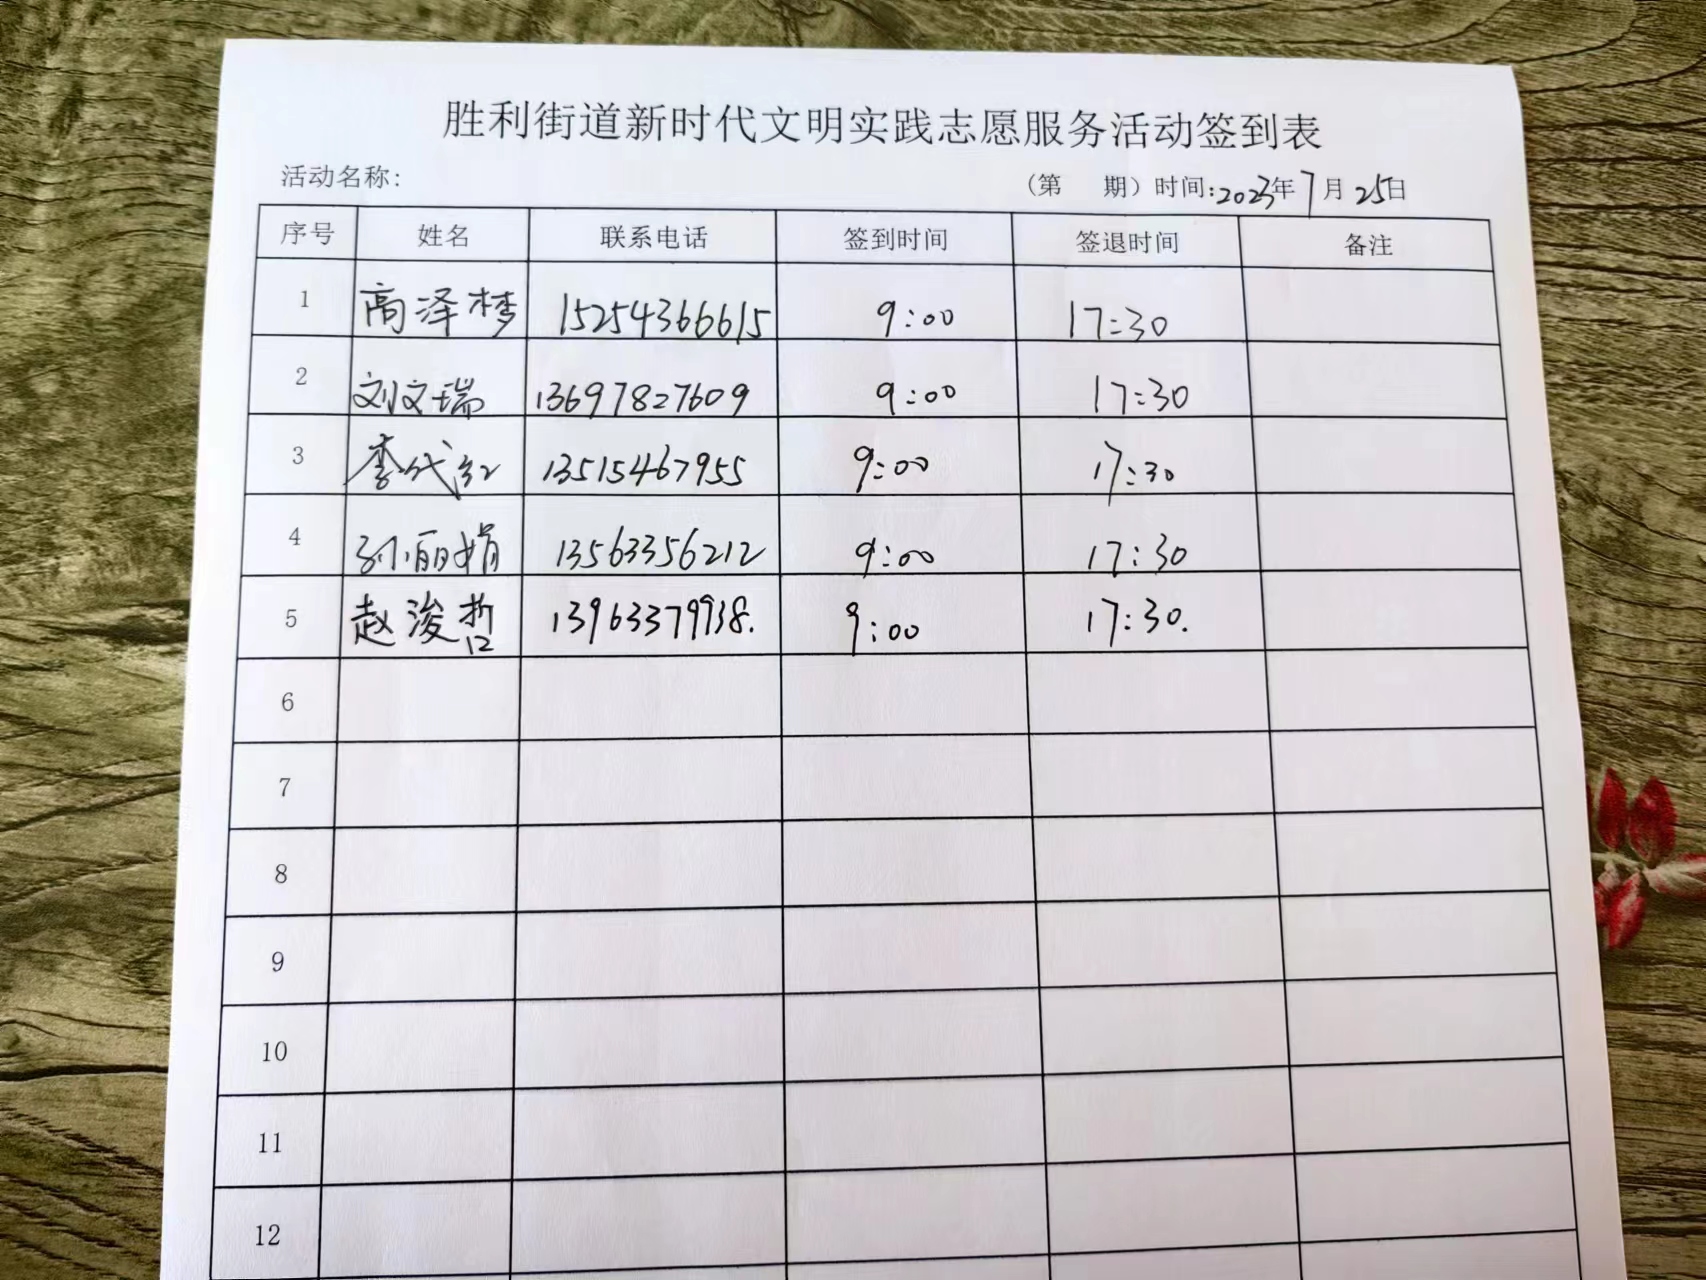 胜利街道新时代文明实践志愿服务活动签到表
活动名称: (第 期) 时间:2023年7月25日
序号 姓名 联系电话 签到时间 签退时间 备注
1 高泽梦 15254366615 9:00 17:30
2 刘文瑞 13697827609 9:00 17:30
3 李代红 13515467955 9:00 17:30
4 孙丽娟 13563356212 9:00 17:30
5 赵浚哲 13963379938. 9:00 17:30.
6
7
8
9
10
11
12